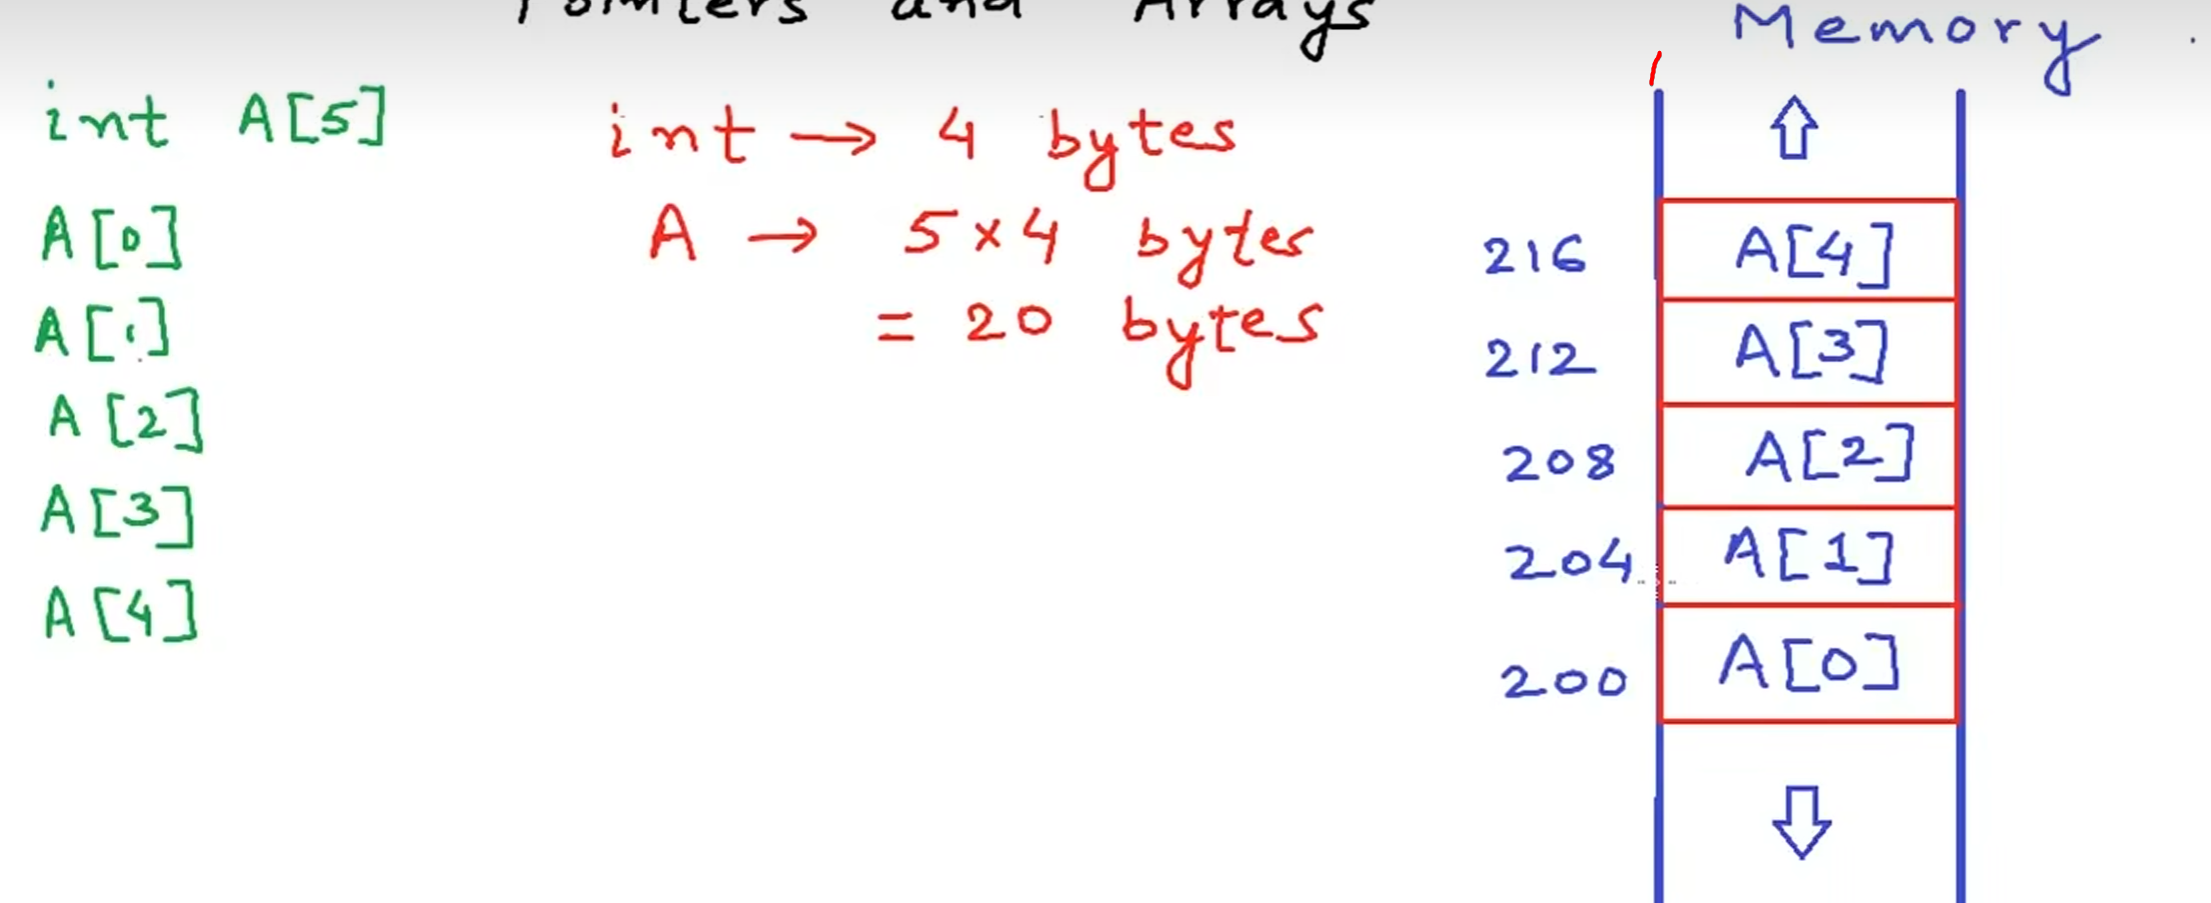 Pointers and Arrays
Memory
int A[5]
A[0]
A[1]
A[2]
A[3]
A[4]
int → 4 bytes
A → 5×4 bytes
= 20 bytes
216 A[4]
212 A[3]
208 A[2]
204 A[1]
200 A[0]